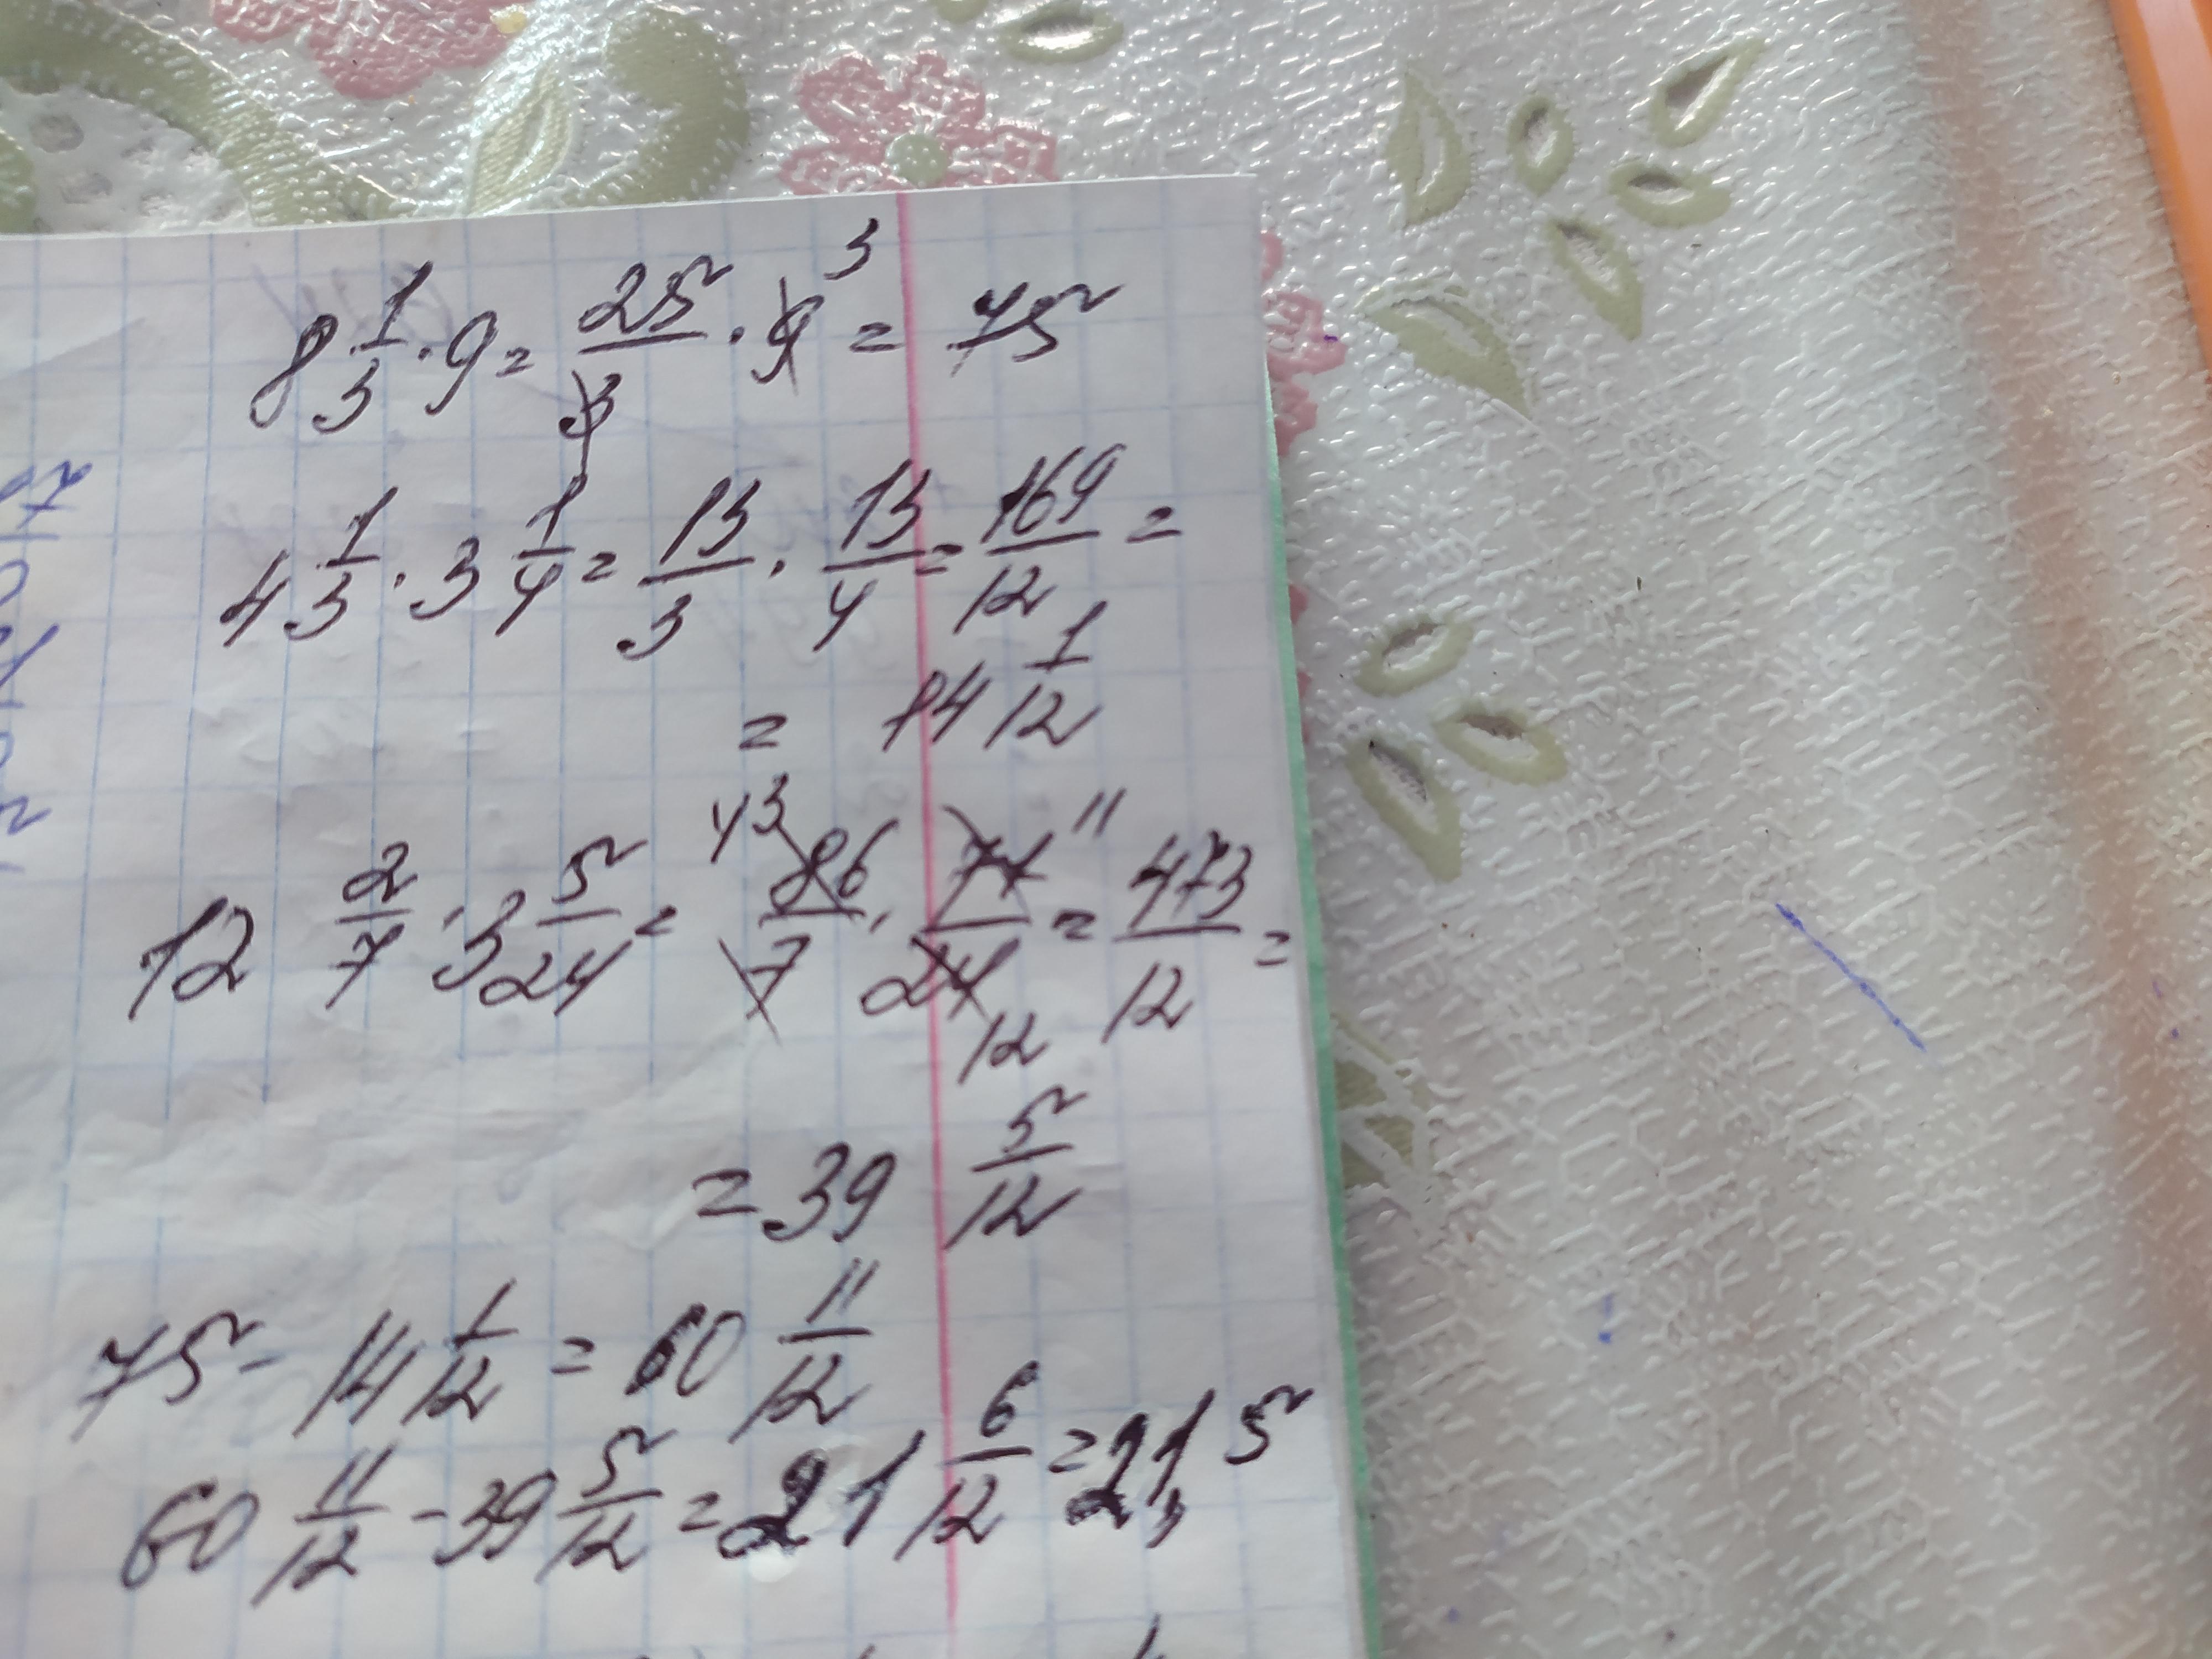 8 1/3 · 9 = 25/3 · 9 3 = 75
4 1/3 · 3 1/4 = 13/3 · 13/4 = 169/12 =
= 14 1/12
12 2/7 · 3 5/24 = 43 86/7 · 77/24 11 12 = 473/12 =
= 39 5/12
75 - 14 1/12 = 60 11/12
60 11/12 - 39 5/12 = 21 6/12 = 21,5